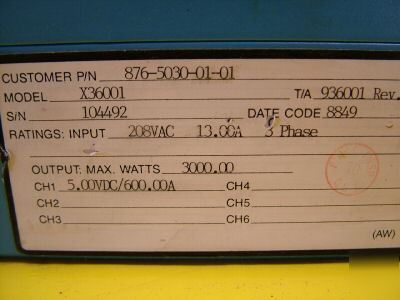 CUSTOMER P/N 876-5030-01-01
MODEL X36001 T/A 936001 Rev.
S/N 104492 DATE CODE 8849
RATINGS: INPUT 208VAC 13.00A 3 Phase
OUTPUT: MAX. WATTS 3000.00
CH1 5.00VDC/600.00A CH4
CH2 CH5
CH3 CH6
(AW)